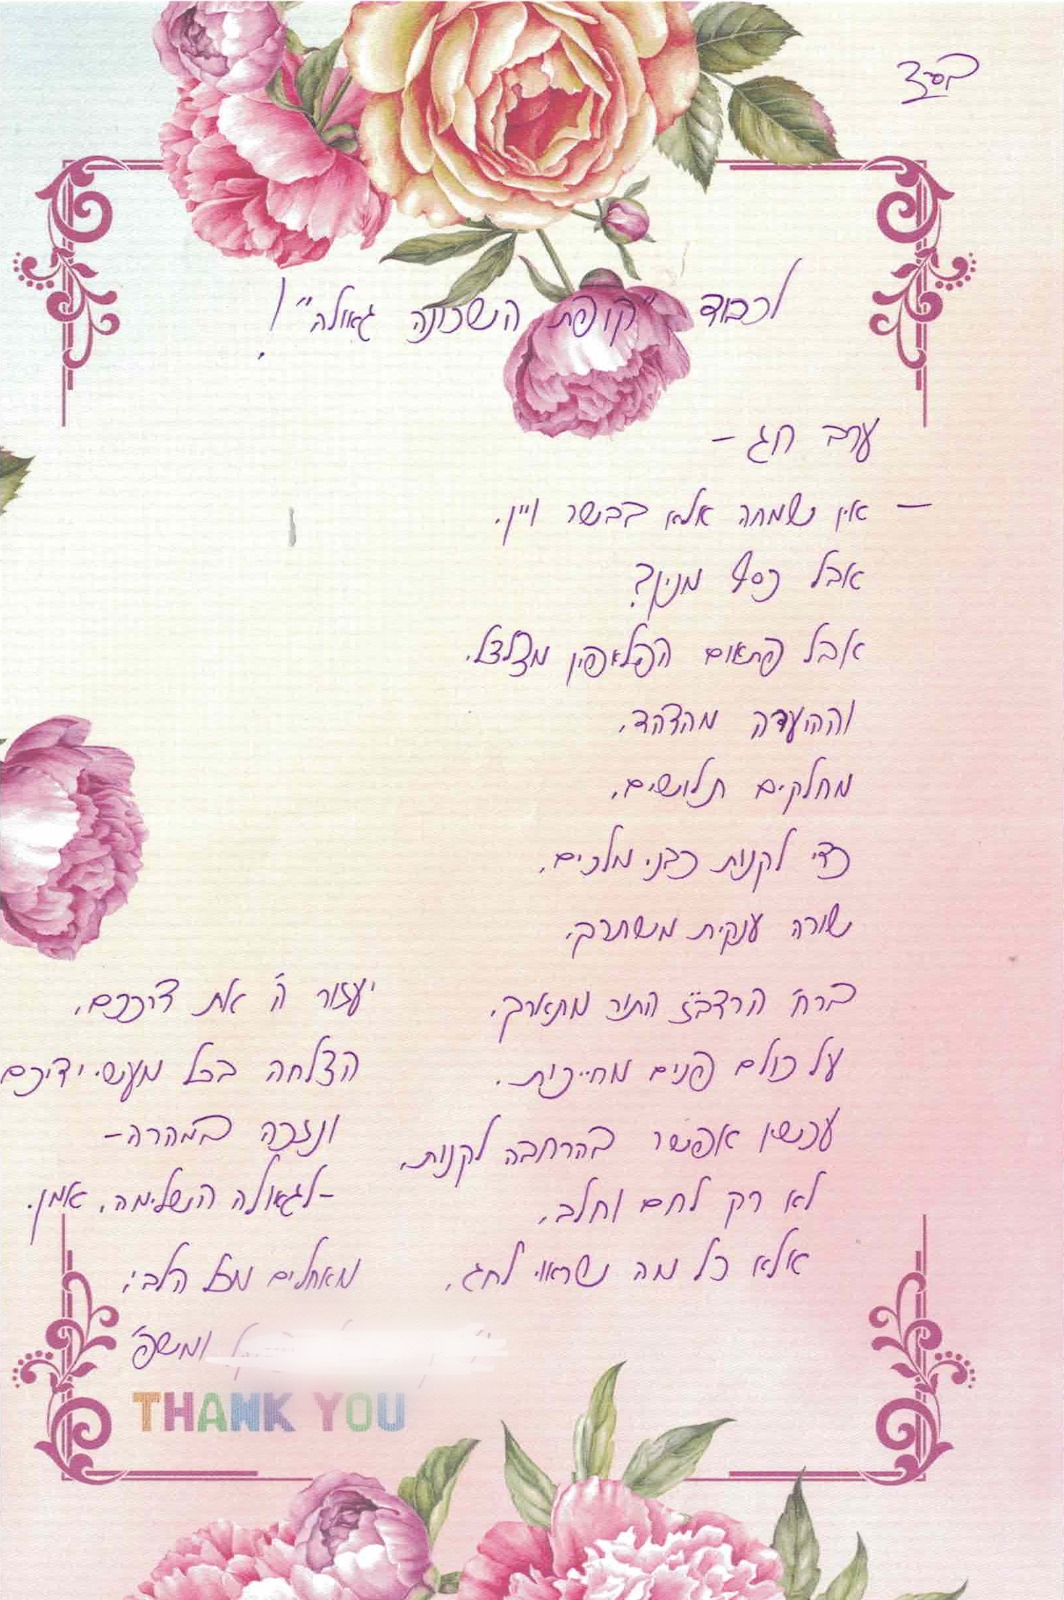 בסד
לכבוד "קופת השכונה גאולה"!
ערב חג -
- אין שמחה אלא בבשר ויין.
אבל כסף מנין?
אבל פתאום הפלאפון מצלצל,
וההועדה מהדהד,
מחלקים תלושים,
כדי לקנות כבני מלכים,
שורה ענקית משתרך,
ברח' הרדב"ז התור מתארך,
על כולם פנים מחייכות.
עכשיו אפשר בהרחבה לקנות,
לא רק לחם וחלב,
אלא כל מה נשראוי לחג,
יעזור ה' את דרככם,
הצלחה בכל מעשי ידיכם
ונזכה במהרה-
-לגאולה השלימה, אמן.
מאחלים מכל הלב:
ומשפ'
THANK YOU